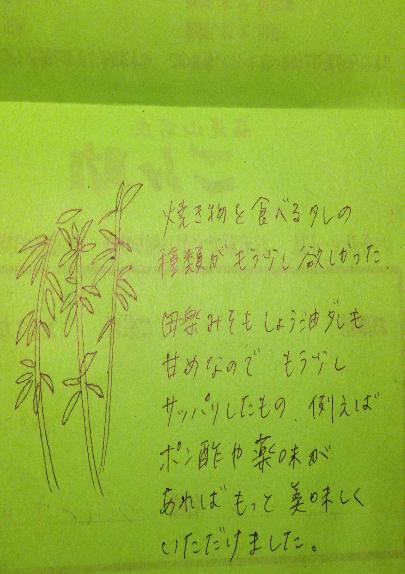 焼き物を食べるタレの
種類がもう少し欲しかった。
田楽みそもしょう油ダレも
甘めなので もう少し
サッパリしたもの、例えば
ポン酢や薬味が
あればもっと美味しく
いただけました。